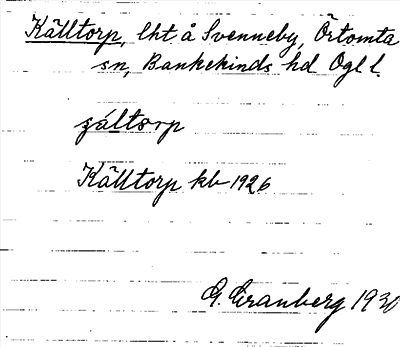 Källtorp, lht å Svenneby, Örtomta
sn, Bankekinds hd Ögl l.
sáltorp
Källtorp kb 1926
G. Granberg 1930